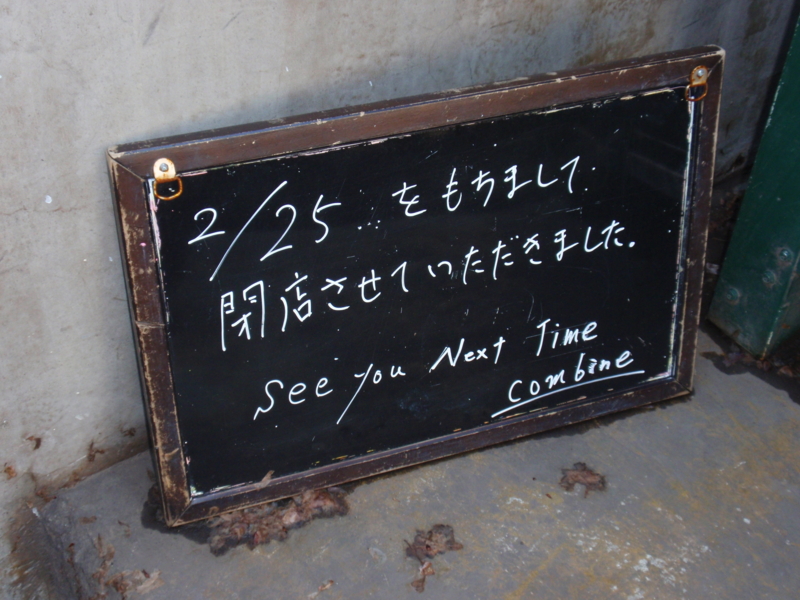 2/25...をもちまして
閉店させていただきました。
See you Next Time
combine